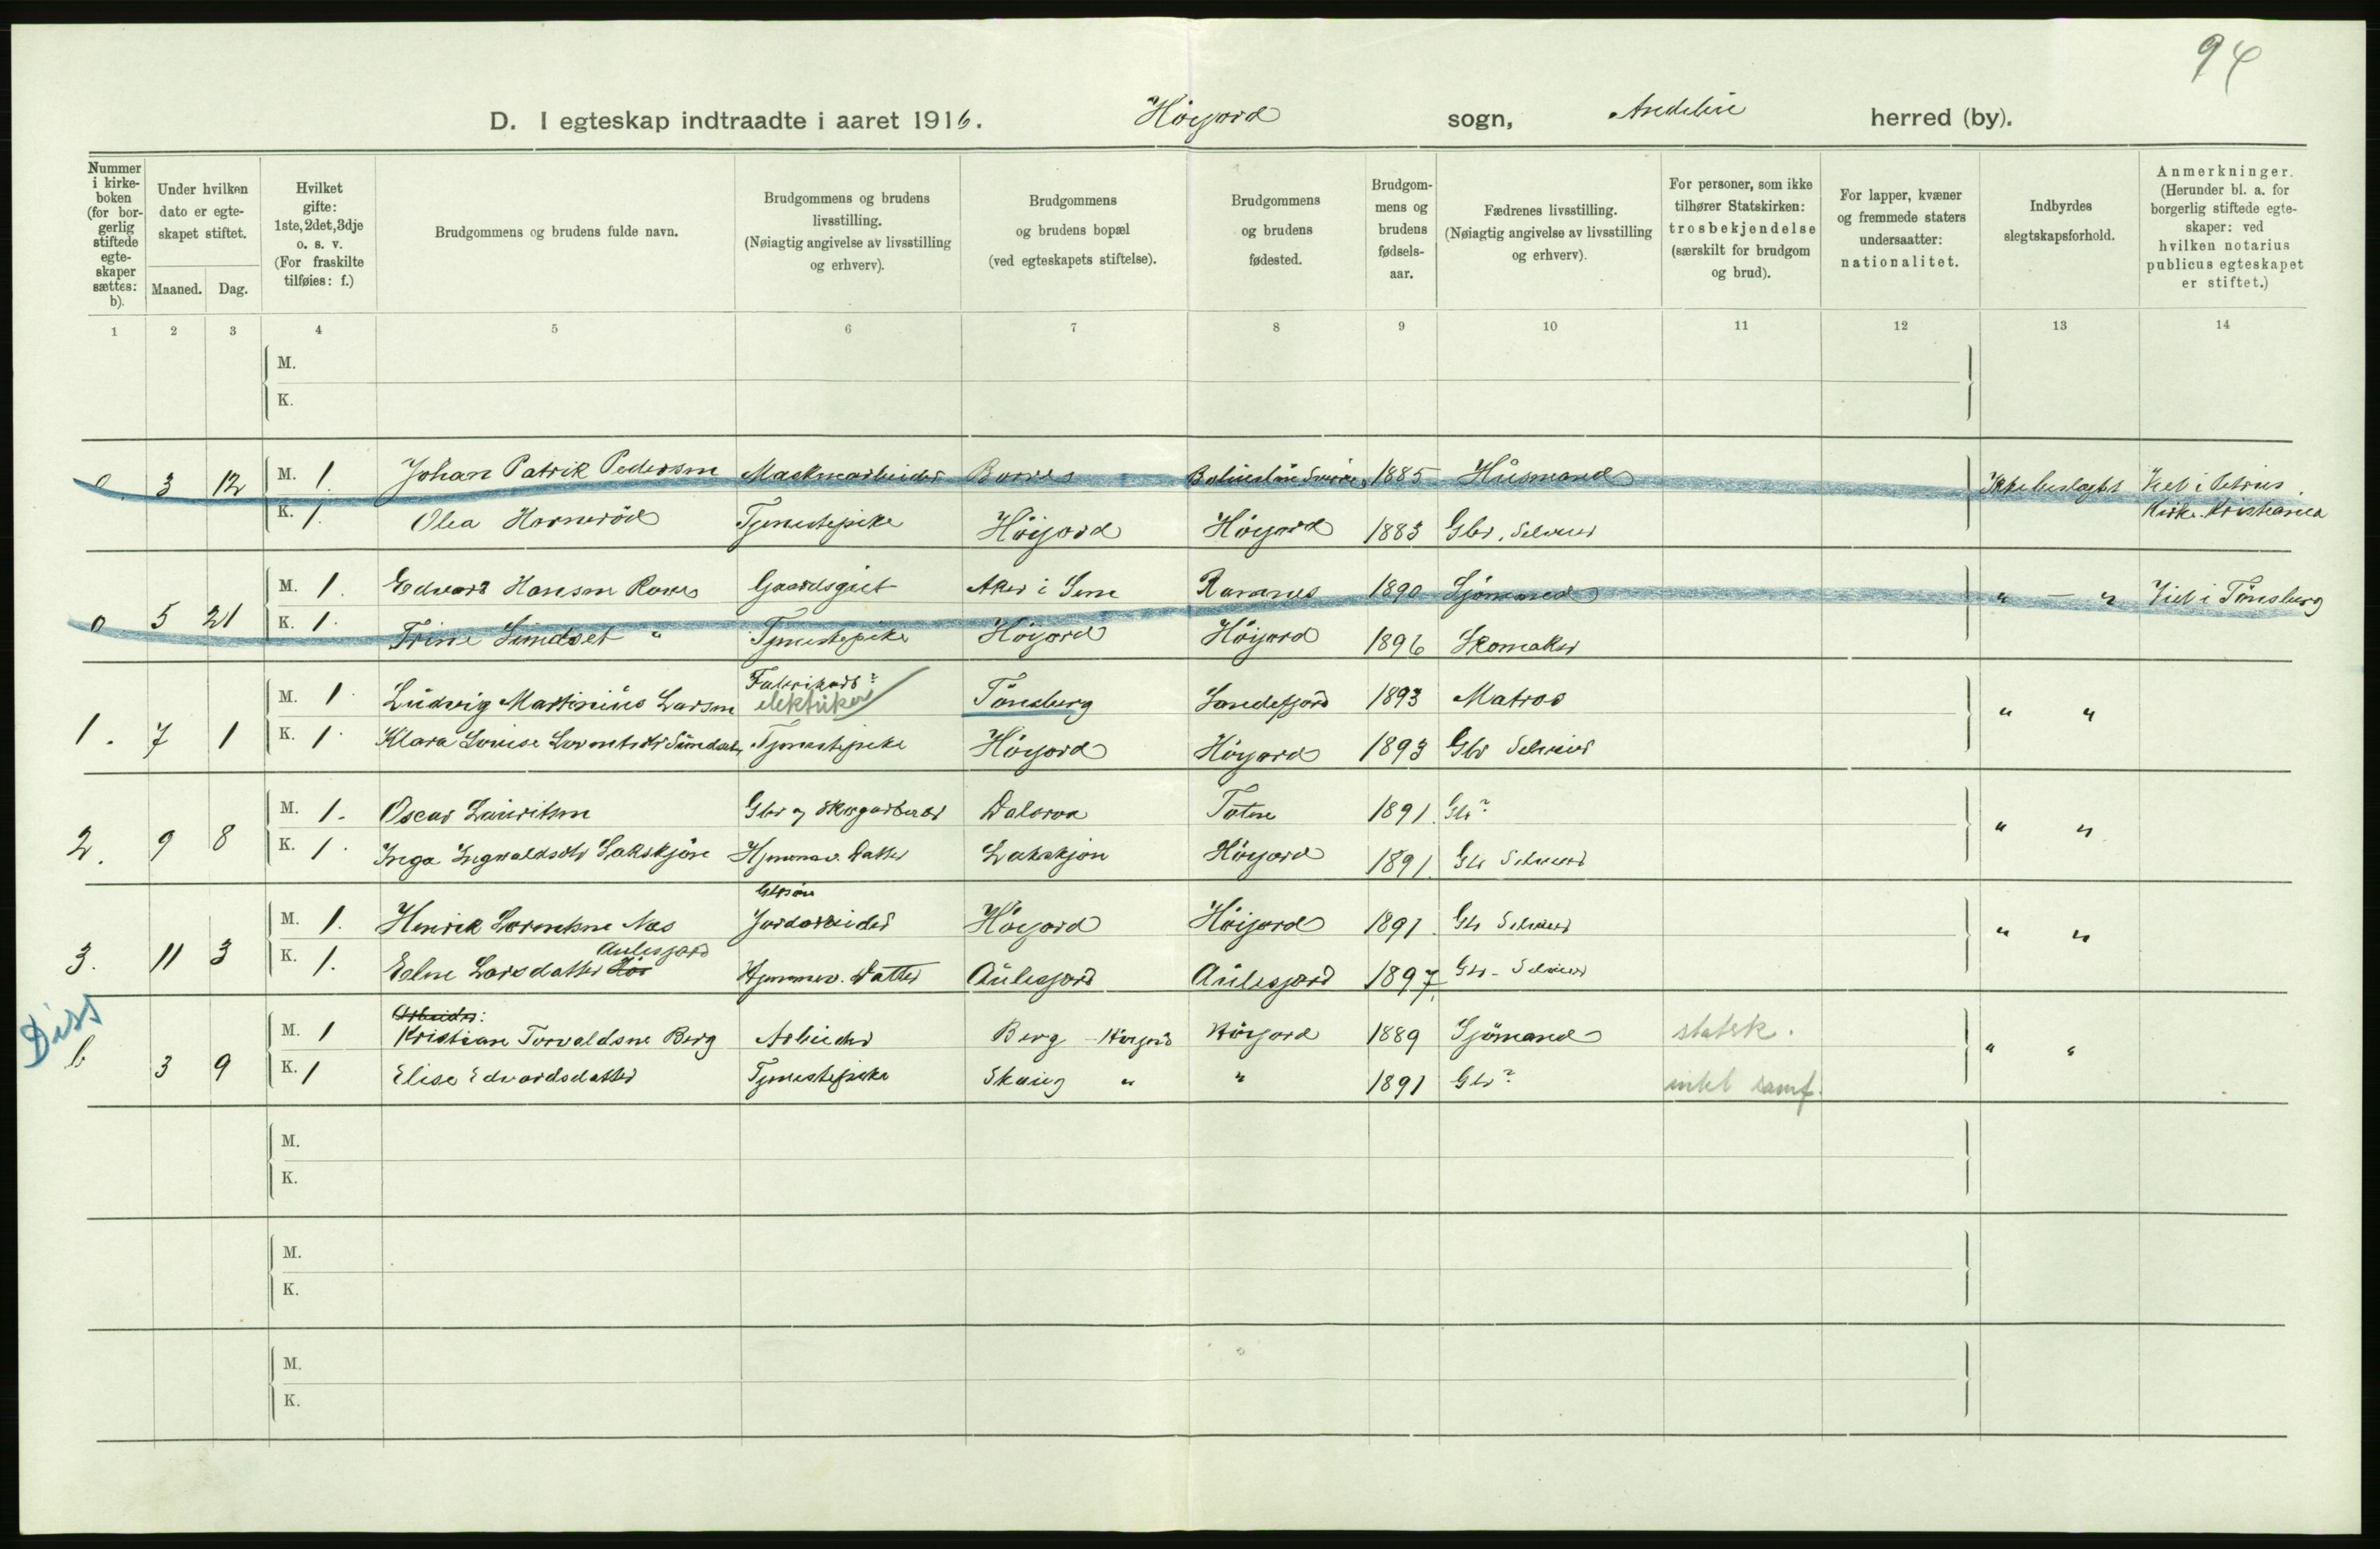 94
D. I egteskap indtraadte i aaret 1916. Höijord sogn, Andebu herred (by).
Nummer i kirkeboken (for borgerlig stiftede egteskaper sættes: b).
Under hvilken dato er egteskapet stiftet.
Maaned. Dag.
Hvilket gifte: 1ste, 2det, 3dje o. s. v. (For fraskilte tilføies: f.)
Brudgommens og brudens fulde navn.
Brudgommens og brudens livsstilling. (Nøiagtig angivelse av livsstilling og erhverv).
Brudgommens og brudens bopæl (ved egteskapets stiftelse).
Brudgommens og brudens fødested.
Brudgommens og brudens fødselsaar.
Fædrenes livsstilling. (Nøiagtig angivelse av livsstilling og erhverv).
For personer, som ikke tilhører Statskirken: trosbekjendelse (særskilt for brudgom og brud).
For lapper, kvæner og fremmede staters undersaatter: nationalitet.
Indbyrdes slegtskapsforhold.
Anmerkninger. (Herunder bl. a. for borgerlig stiftede egteskaper: ved hvilken notarius publicus egteskapet er stiftet.)
1 2 3 4 5 6 7 8 9 10 11 12 13 14
M.
K.
0 3 12 M. 1. Johan Patrik Pedersen Maskinarbeider Borre 1885 Husmand Ikke beslagtet Viet i Petrus
K. 1. Olea Horneröd Tjenestepike Höijord Höijord 1883 Gbr. Selveier Kirke. Kristiania
0 5 21 M. 1. Edvard Hansen Gaardsgut Aker i Sem Ramnes 1890 Sjömand " — " Viet i Tönsberg
K. 1. Trine Sundset " Tjenestepike Höijord Höijord 1896 Skomaker
Fabrikarb:
1. 7 1 M. 1. Ludvig Martinius Larsen elektriker Tönsberg Sandefjord 1893 Matros " "
K. 1. Klara Louise Lorentsdtr Sundset Tjenestepike Höijord Höijord 1893 Gbr Selveier
2. 9 8 M. 1. Oscar Lauritsen Gbr og Skogarbeider Toten 1891. Gbr. " "
K. 1. Inga Ingvaldsdtr Sakskjön Hjemmev. Datter Höijord 1891. Gbr Selveier
Gbrsön
3. 11 3 M. 1. Henrik Lorentsen Næs Jordarbeider Höijord Höijord 1891. Gbr Selveier " "
Aulesjord
K. 1. Larsdatter Hjemmev. Datter Aulesjord Aulesjord 1897. Gbr. Selveier
Diss
Arbeider:
b 3 9 M. 1 Kristian Torvaldsen Berg Arbeider Berg - Höijord Höijord 1889 Sjömand statsk. " "
K. 1 Elise Edvardsdatter Tjenestepike Skaug " " 1891 Gbr. intet samf.
M.
K.
M.
K.
M.
K.